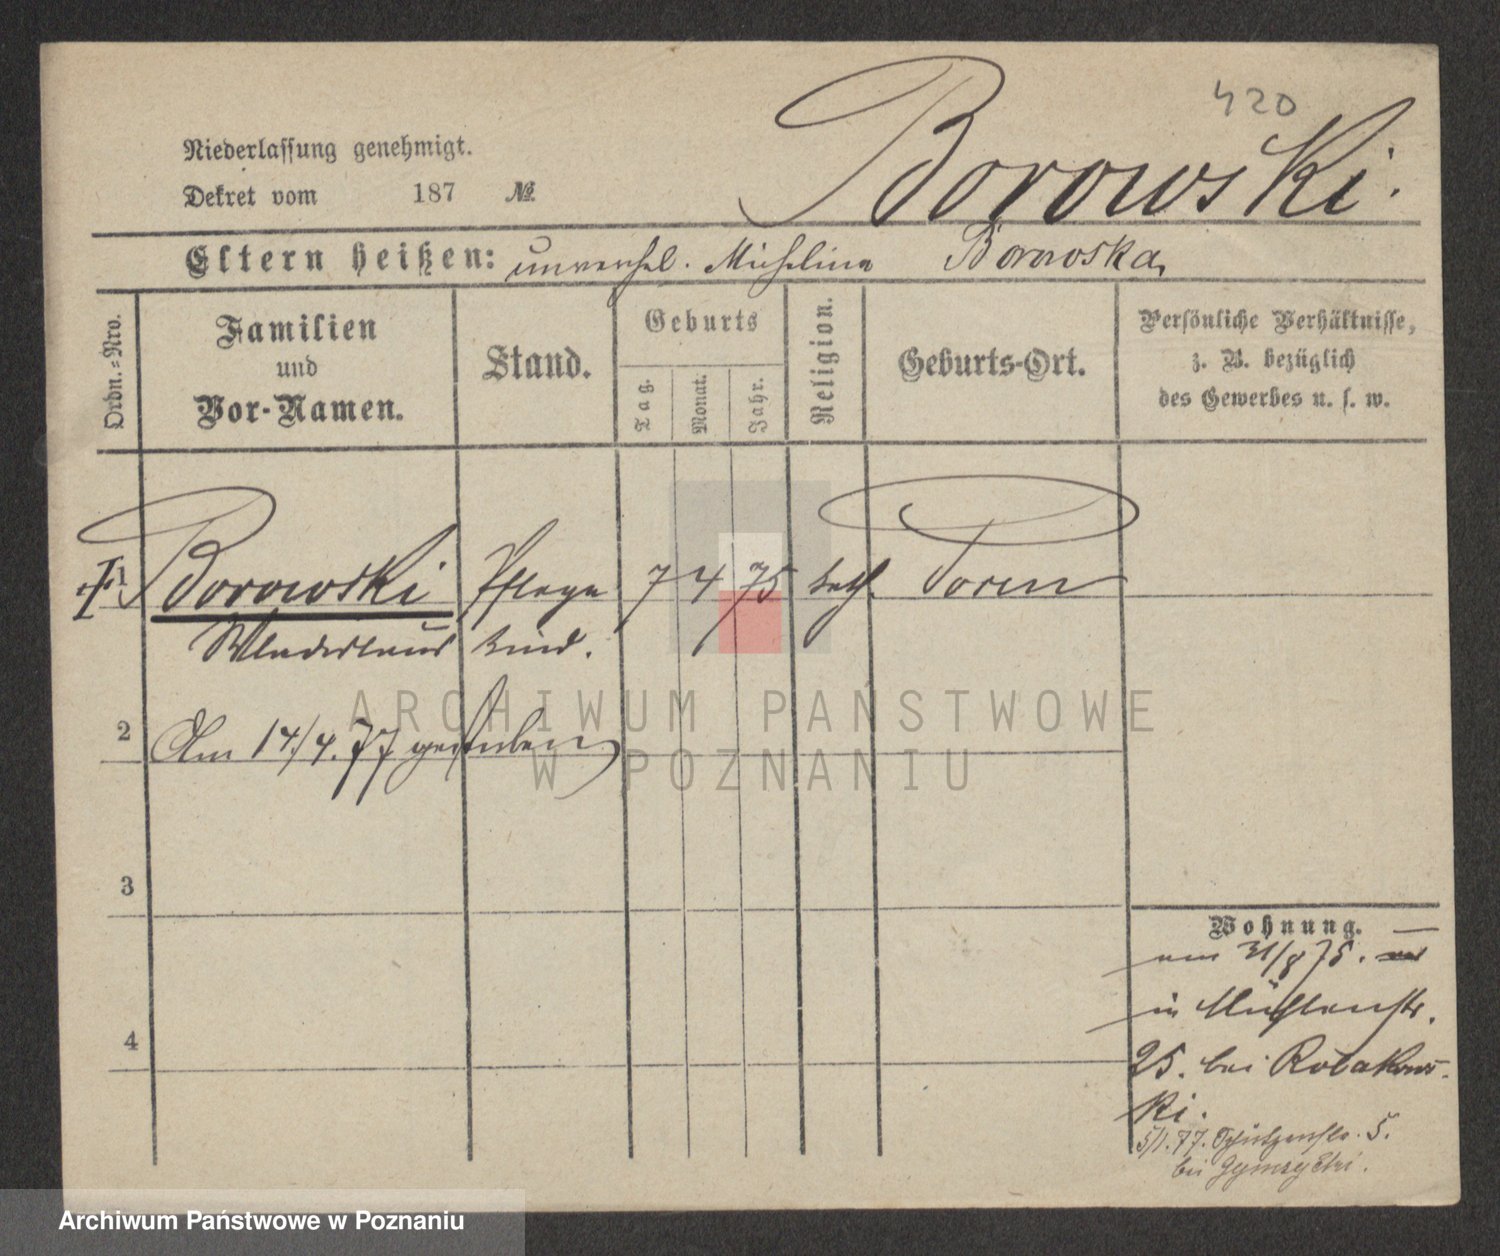 420
Borowski.
Niederlassung genehmigt.
Dekret vom 187 №.
Eltern heißen: unverehel. Michalina Borowska,
Ordn.=Nro.
Familien
und
Vor-Namen.
Stand.
Geburts
Tag.
Monat.
Jahr.
Religion.
Geburts-Ort.
Persönliche Verhältnisse,
z. B. bezüglich
des Gewerbes u. s. w.
1 Borowski Pflege 7 4 75 kath. Posen
Wladislaus kind.
2 Am 14/4.77 gestorben
3
4
Wohnung.
am 31/8 75.
in Mühlenstr.
25. bei Robakows-
ki.
5/1.77. Schützenstr. 5.
bei
ARCHIWUM PAŃSTWOWE
W POZNANIU
Archiwum Państwowe w Poznaniu